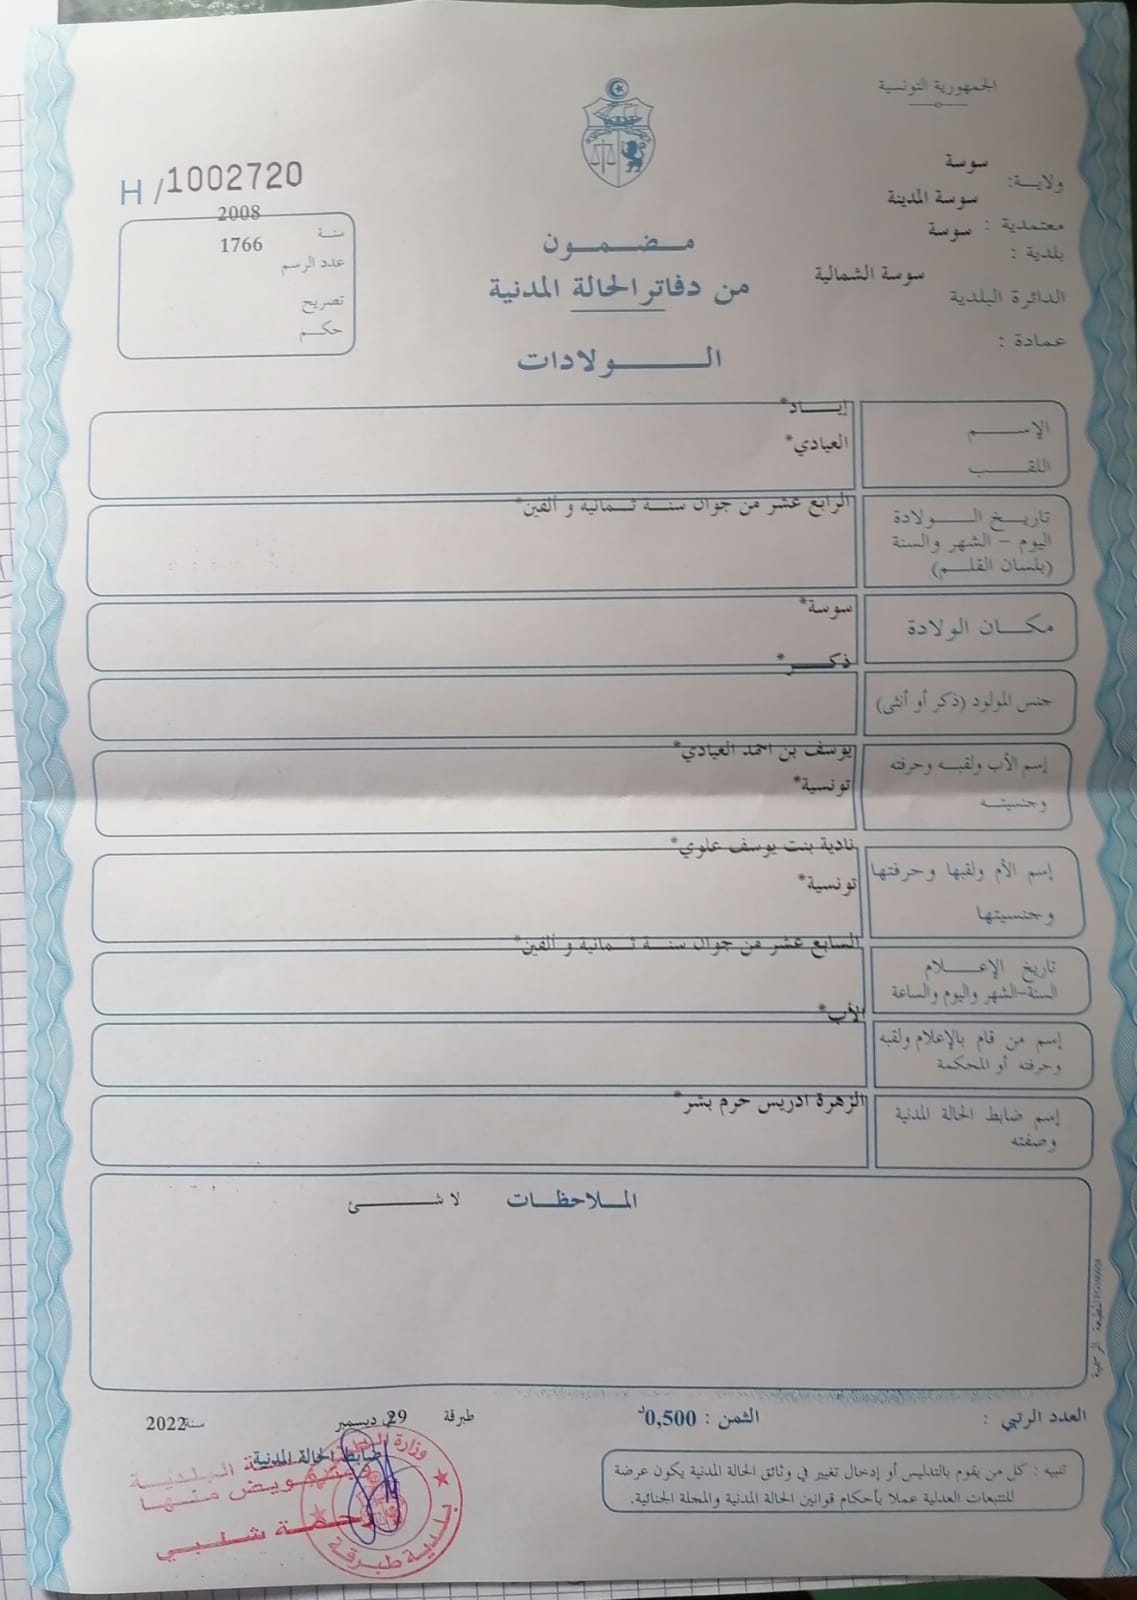 الجمهورية التونسية
ولاية: سوسة
معتمدية : سوسة المدينة
بلدية : سوسة
الدائرة البلدية سوسة الشمالية
عمادة :
H/1002720
سنة 2008
عدد الرسم 1766
تصريح
حكم
مضمون
من دفاتر الحالة المدنية
الولادات
الإسم إياد*
اللقب العيادي*
تاريخ الولادة الرابع عشر من جوان سنة ثمانية و ألفين*
اليوم - الشهر والسنة
(بلسان القلم)
مكان الولادة سوسة*
جنس المولود (ذكر أو أنثى) ذكر*
إسم الأب ولقبه وحرفته يوسف بن احمد العيادي*
وجنسيته تونسية*
إسم الأم ولقبها وحرفتها نادية بنت يوسف علوي*
وجنسيتها تونسية*
تاريخ الإعلام السابع عشر من جوان سنة ثمانية و ألفين*
السنة-الشهر واليوم والساعة
إسم من قام بالإعلام ولقبه الأب*
وحرفته أو المحكمة
إسم ضابط الحالة المدنية الزهرة ادريس حرم بشر*
وصفته
الملاحظات لا شئ
المطبعة الرسمية
العدد الرتبي : الثمن : 0,500د
طبرقة في 29 ديسمبر سنة 2022
ضابط الحالة المدنية
البلدية
وبتفويض منها
رحمة شلبي
وزارة
بلدية طبرقة
تنبيه : كل من يقوم بالتدليس أو إدخال تغيير في وثائق الحالة المدنية يكون عرضة
للتتبعات العدلية عملا بأحكام قوانين الحالة المدنية والمجلة الجنائية.